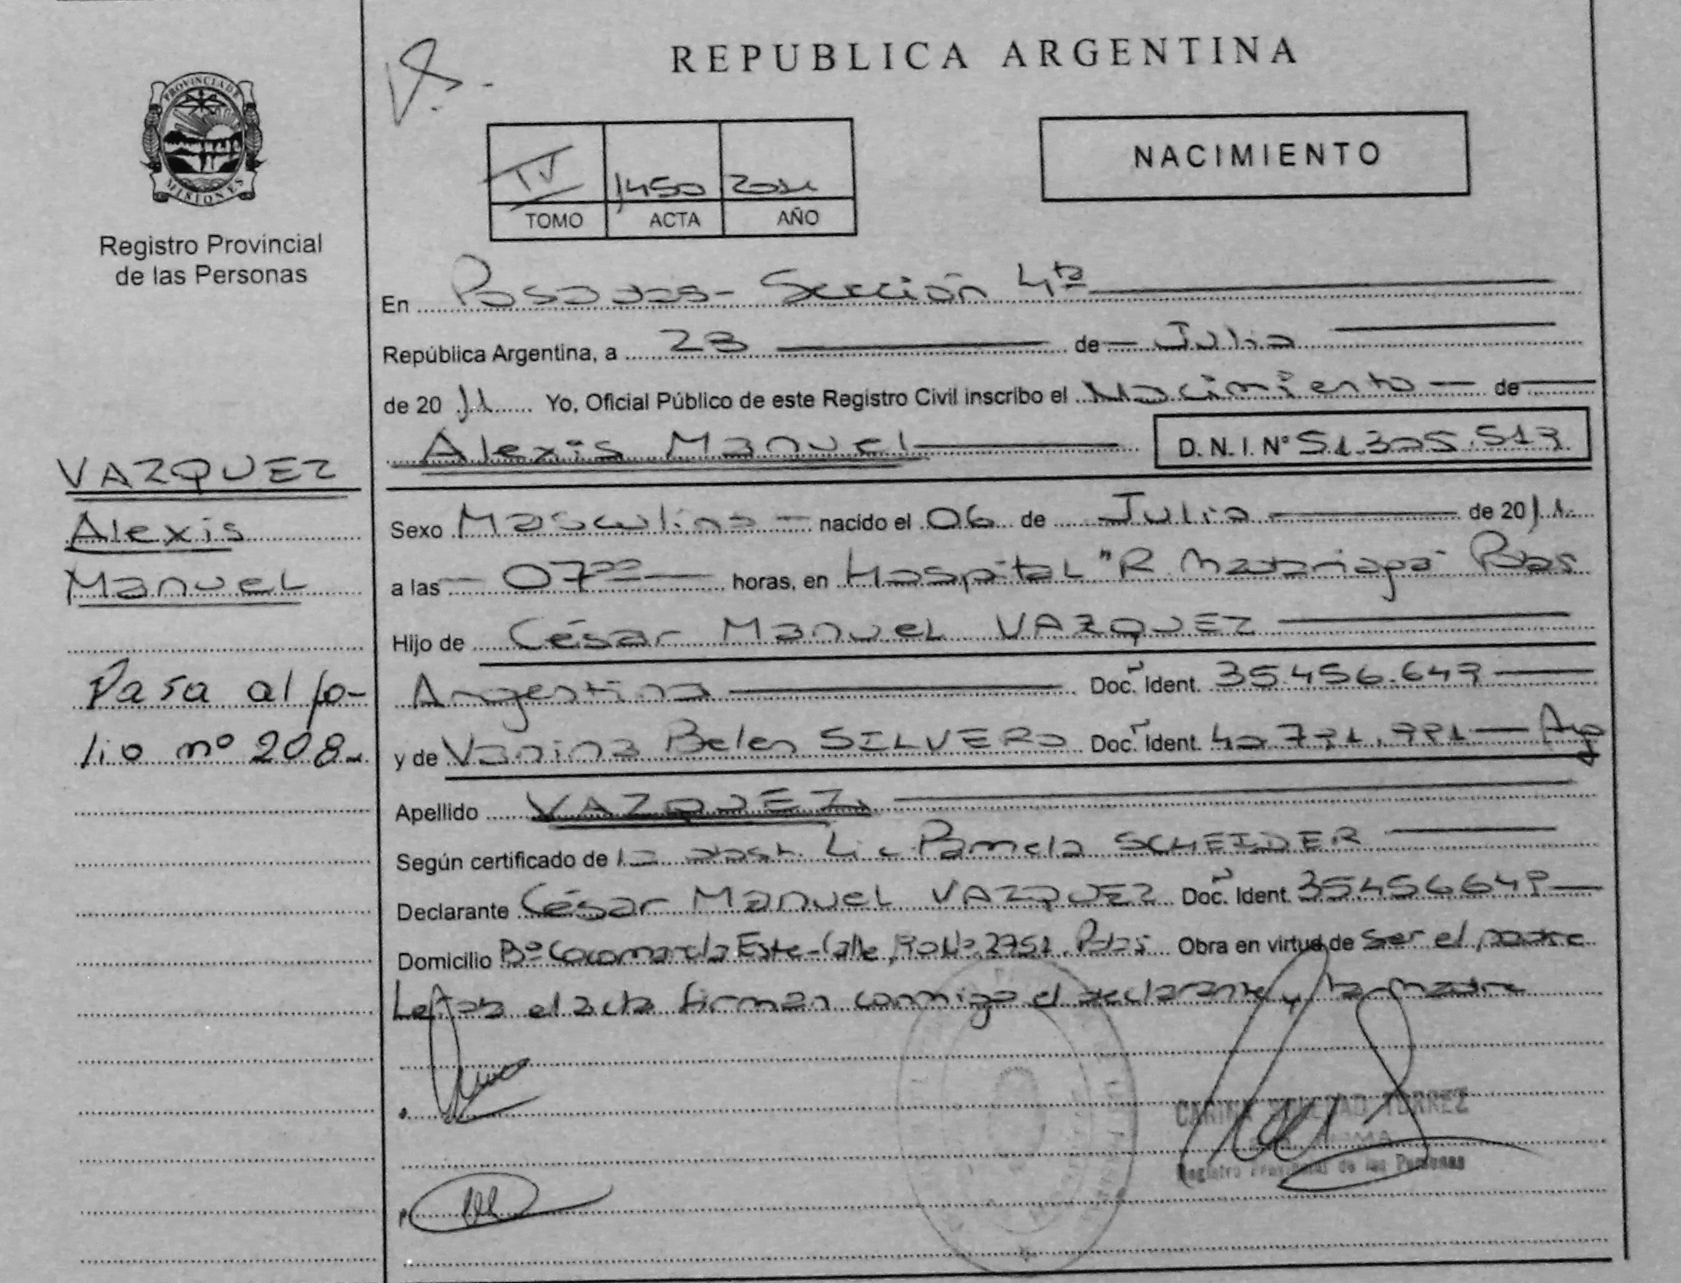 REPUBLICA ARGENTINA
PROVINCIA DE MISIONES
Registro Provincial
de las Personas
NACIMIENTO
IV 1450 2011
TOMO ACTA AÑO
En Posadas - Sección 4ta
República Argentina, a 23 de Julio
de 2011 Yo, Oficial Público de este Registro Civil inscribo el Nacimiento de
Alexis Manuel D.N.I. Nº 51.305.513
VAZQUEZ
Alexis
Manuel
Pasa al fo-
lio nº 208
Sexo Masculino nacido el 06 de Julio de 2011
a las 07 00 horas, en Hospital "R. Madariaga" Pdas
Hijo de César Manuel VAZQUEZ
Argentina Doc. Ident. 35.456.649
y de Vanina Belen SILVERO Doc. Ident. Arg
Apellido VAZQUEZ
Según certificado de la obst. Lic Pamela SCHEIDER
Declarante César Manuel VAZQUEZ Doc. Ident. 35456649
Domicilio Bº Cocomarola Este - Calle 2751. Pdas Obra en virtud de ser el padre
Leída el acta firman conmigo el declarante y la madre
CARINA SOLEDAD TORREZ
FIRMA
Registro Provincial de las Personas